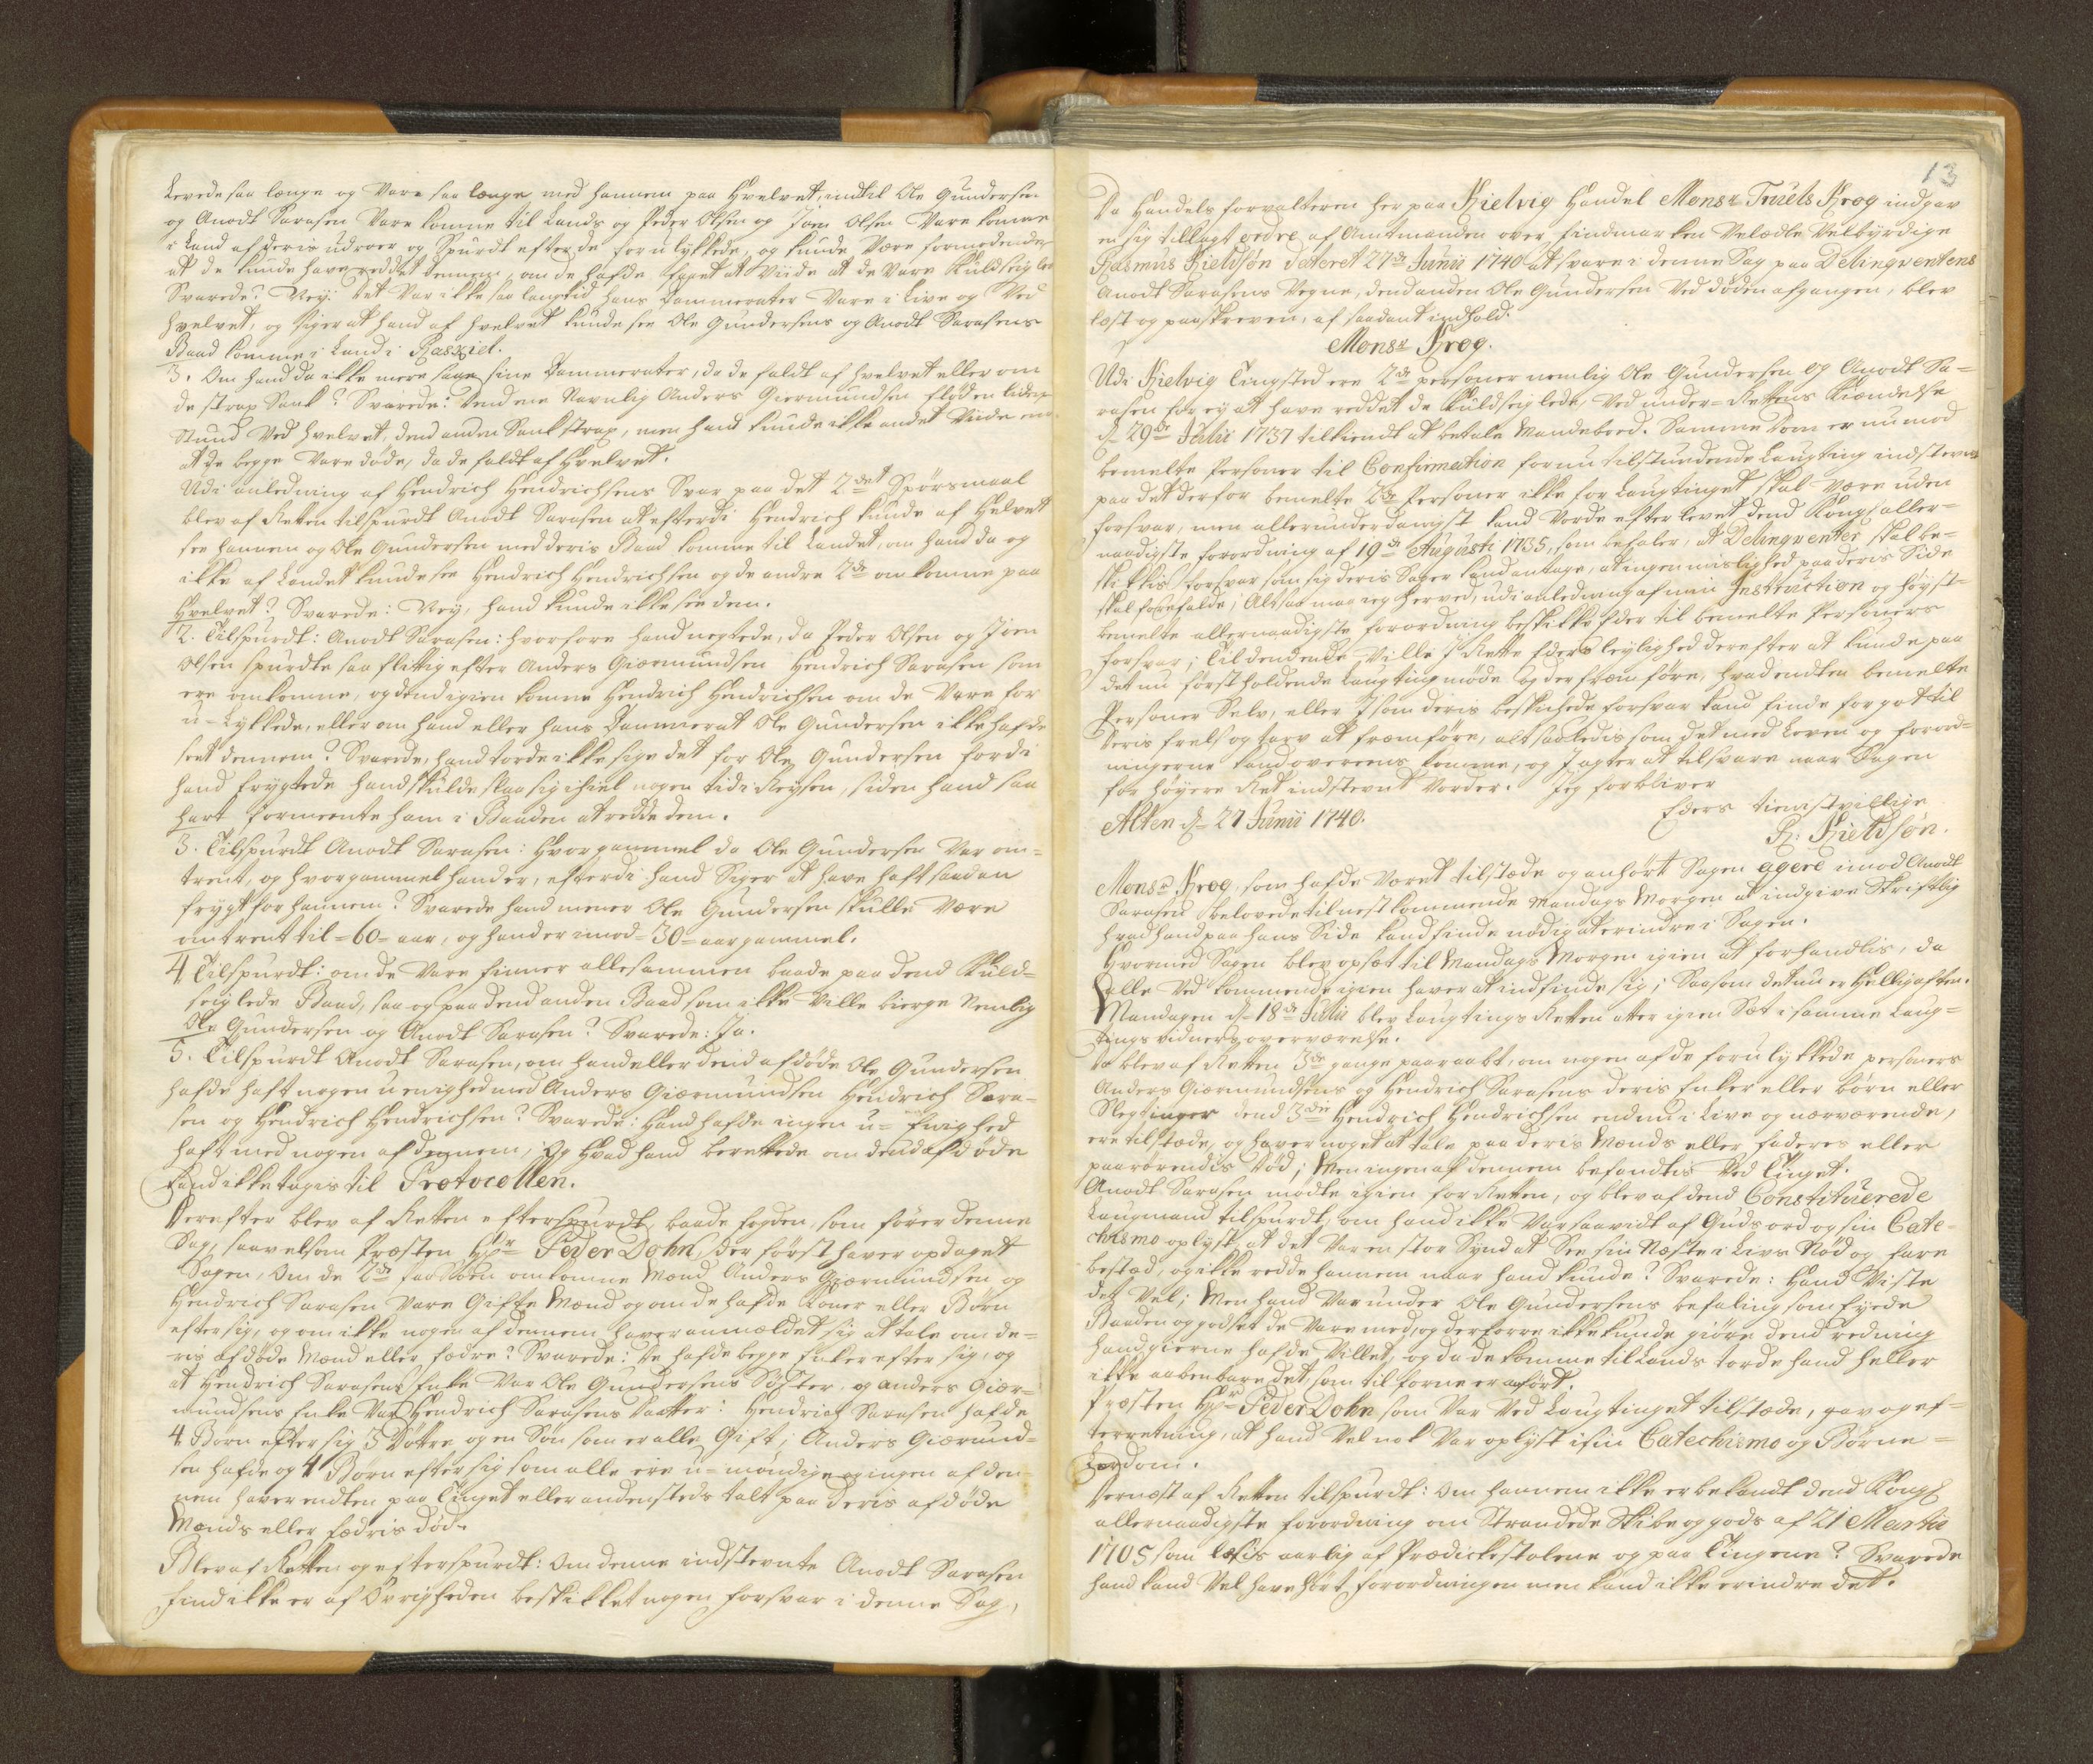 Levede saa længe og Vare saa længe med hannem paa Hvelvet, indtil Ole Gundersen
og Anodt Sarasen Vare komne til Lands og Peder Olsen og Joen Olsen Vare komne
i Land af deris udroer og Spurdt efter de forulykkede, og kunde Være formodende
at de kunde have reddet dennem, om de hafde faget at viide at de Vare Kuldseiglet
Svarede: Ney: det Var ikke saa lang tid hans Cammerater Vare i Live og Ved
hvelvet, og siger at hand af hvelvet kunde see Ole Gundersens og Anodt Sarasens
Baad komme i Land i
3. Om hand da ikke mere saae sine Cammerater, da de faldt af hvelvet eller om
de strax Sank? Svarede: dend ene Navnlig Anders Giermundsen fløed en liden
Stund Ved hvelvet, dend anden Sank strax, men hand kunde ikke andet Viide end
at de begge Vare døde, da de faldt af Hvelvet.
Udi anledning af Hendrich Hendrichsens Svar paa det 2det Spørsmaal
blev af Retten tilspurdt Anodt Sarasen at efterdi Hendrich kunde af Helvet
see hannem og Ole Gundersen med deris Baad komme til Landet, om hand da og
ikke af Landet kunde see Hendrich Hendrichsen og de andre 2de omkomne paa
Hvelvet? Svarede: Ney, hand kunde ikke see dem.
2. Tilspurdt: Anodt Sarasen: hvorfore hand negtede, da Peder Olsen og Joen
Olsen spurdte saa flittig efter Anders Giærmundsen Hendrich Sarasen som
ere omkomne, og dend igien komne Hendrich Hendrichsen om de Vare for
u-Lykkede, eller om hand eller hans Cammerat Ole Gundersen ikke hafde
seet dennem? Svarede, hand torde ikke sige det for Ole Gundersen fordi
hand frygtede hand skulde slaa sig ihiel nogen tid i Reysen, siden hand saa
hart formeente ham i Baaden at redde dem.
3. Tilspurdt Anodt Sarasen: Hvor gammel da Ole Gundersen Var om-
trent, og hvor gammel hand er, efterdi hand Siger at have haft saadan
frygt for hannem? Svarede hand mener Ole Gundersen skulle Være
omtrent til = 60 = aar, og hand er imod = 30 = aar gammel.
4 Tilspurdt: om de Vare finner allesammen baade paa dend Kuld-
seiglede Baad, saa og paa dend anden Baad som ikke Ville bierge Nemlig
Ole Gundersen og Anodt Sarasen? Svarede: Ja.
5. Tilspurdt Anodt Sarasen, om hand eller dend afdøde Ole Gundersen
hafde haft nogen u enighed med Anders Giærmundsen Hendrich Sara-
sen og Hendrich Hendrichsen? Svarede: Hand hafde ingen u-Enighed
haft med nogen af dennem; Og Hvad hand berettede om dend afdøde
kand ikke tages til Protocollen.
Derefter blev af Retten efterspurdt, baade fogden, som fører denne
Sag, saavelsom Præsten Hr Peder Dohn, der først haver opdaget
Sagen, Om de 2de omkomne Mænd, Anders Giærmundsen og
Hendrich Sarasen Vare Gifte Mænd og om de hafde Koner eller Børn
efter sig, og om ikke nogen af dennem haver anmældet sig at tale om de-
ris afdøde Mænd eller fædre? Svarede: De hafde begge Enker efter sig, og
at Hendrich Sarasens Enke Var Ole Gundersens Søster, og Anders Giær-
mundsens Enke Var Hendrich Sarasens Daatter: Hendrich Sarasen hafde
4 Børn efter sig 3 Døttre og en Søn som er alle Gift; Anders Giærmund-
sen hafde og 4 Børn efter sig som alle ere u-myndige og ingen af den-
nem haver endten paa Tinget eller andensteds talt paa deris afdøde
Mænds eller fædris død.
Blev af Retten og efterspurdt: Om denne indstevnte Anodt Sarasen
find ikke er af Øvrigheden beskikket nogen forsvar i denne Sag,
13
Da Handels forvalteren her paa Kielvig Handel Monsr Truels Krog indgav
en sig tillagt ordre af Amtmanden over findmarken Velædle Velbyrdige
Rasmus Kieldsøn dateret 27de Junii 1740 at svare i denne Sag paa Delinqventens
Anodt Sarasens Vegne, dend anden Ole Gundersen Ved døden afgangen, blev
læst og paaskreven, af saadant indhold.
Monsr Krog.
Udi Kielvig Tingsted ere 2de personer nemlig Ole Gundersen og Anodt Sa-
rasen for ey at have reddet de Kuldseiglede, Ved under-Rettens Kiændelse
d. 29de Julii 1737 tilkiendt at betale Mandebood. Samme Dom er nu mod
bemelte Personer til Confirmation for nu tilstundende Laugting indstevnt
paa det derfor bemelte 2de Personer ikke for Laugtinget skal være uden
forsvar, men allerunderdanigst kand Vorde efterlevet dend Kongl. aller-
naadigste forordning af 19de Augusti 1735, som befaler, at Delinqventer skal be-
skikkis forsvar som sig deris Sager kand antage, at ingen mislighed paa deris Side
skal forrefalde; Altsaa maa ieg herved, udi anledning af min Instruction og høyst-
bemelte allernaadigste forordning beskikke Eder til bemelte Personers
forsvar; Til dend ende Ville I Rette Eders leylighed derefter at kunde paa
det nu først holdende Laugting møde og der frem føre, hvad endten bemelte
Personer Selv, eller I som deris beskickede forsvar kand finde for got til
deris frelse og tarv at fremføre, alt saaledis som det med Loven og forord-
ningerne kand overeens komme, og I agter at tilsvare naar Sagen
for høyere Ret indstevnt Vorder. Jeg forbliver
Eders tienstvillige
Alten d. 27 Junii 1740.
R: Kieldsøn.
Monsr Krog, som hafde Været tilstæde og anhørt Sagen agere imod Anodt
Sarasen belovede til nest kommende Mandags Morgen at indgive Skriftlig
hvad hand paa hans Side kand finde nødig at erindre i Sagen.
Hvormed Sagen blev opsæt til Mandags Morgen igien at forhandlis, da
alle Ved kommende igien haver at indfinde sig; Saasom det nu er Helligaften.
Mandagen d. 18de Julii blev Laugtings Retten atter igien Sat i samme Laug-
tings vidners overværelse.
Da blev af Retten 3de gange paaraabt, om nogen af de forulykkede personers
Anders Giærmundsens og Hendrich Sarasens deris Enker eller børn eller
Slegtinger dend 3die Hendrich Hendrichsen endnu i Live og nærværende,
ere tilstæde, og haver noget at tale paa deris Mænds eller faders eller
paarørendis død; Men ingen af dennem befandtes Ved Tinget.
Anodt Sarasen mødte igien for Retten, og blev af dend Constituerede
Laugmand tilspurdt, om hand ikke Var saavidt af Guds ord og sin Cate-
chismo oplyst, at det Var en stor Synd at See sin Næste i Livs Nød og fare
bestæd, og ikke redde hannem naar hand kunde? Svarede: Hand Viste
det Vel; Men hand Var under Ole Gundersens befaling som eyede
Baaden og godset de Vare med, og derforre ikke kunde giøre dend redning
hand gierne hafde Villet, og da de komme til Lands torde hand heller
ikke aabenbare det, som til forne er anført.
Præsten Hr Peder Dohn som Var Ved Laugtinget tilstæde, gav og ef-
terretning, at hand Vel nok Var oplyst i sin Catechismo og Børne-
Lærdom.
Dernæst af Retten tilspurdt: Om hannem ikke er bekandt dend Kongl.
allernaadigste forordning om Strandede Skibe og gods af 21 Martii
1705 som læsis aarlig af Prædickestolene og paa Tingene? Svarede
hand kand Vel have hørt forordningen men kand ikke erindre det.